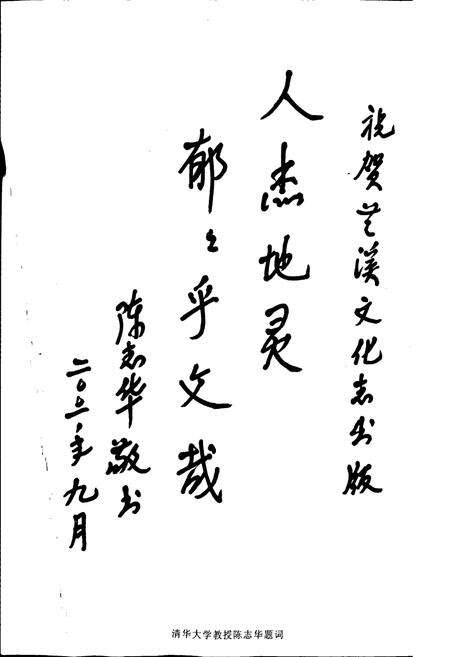 祝贺兰溪文化志出版
人杰地灵
郁々乎文哉
陈志华敬书
二〇〇二年九月
清华大学教授陈志华题词